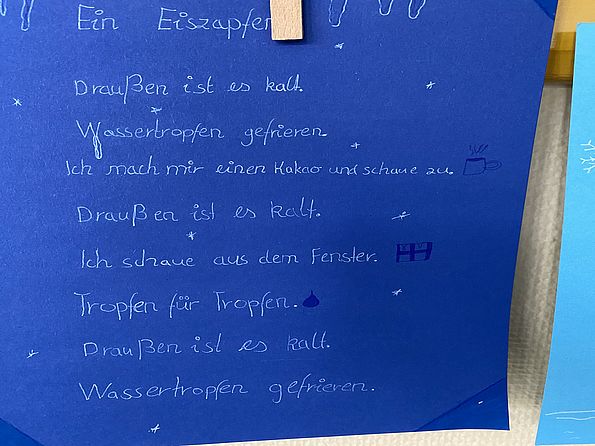 Ein Eiszapfen
Draußen ist es kalt.
Wassertropfen gefrieren.
Ich mach mir einen Kakao und schaue zu.
Draußen ist es kalt.
Ich schaue aus dem Fenster.
Tropfen für Tropfen.
Draußen ist es kalt.
Wassertropfen gefrieren.